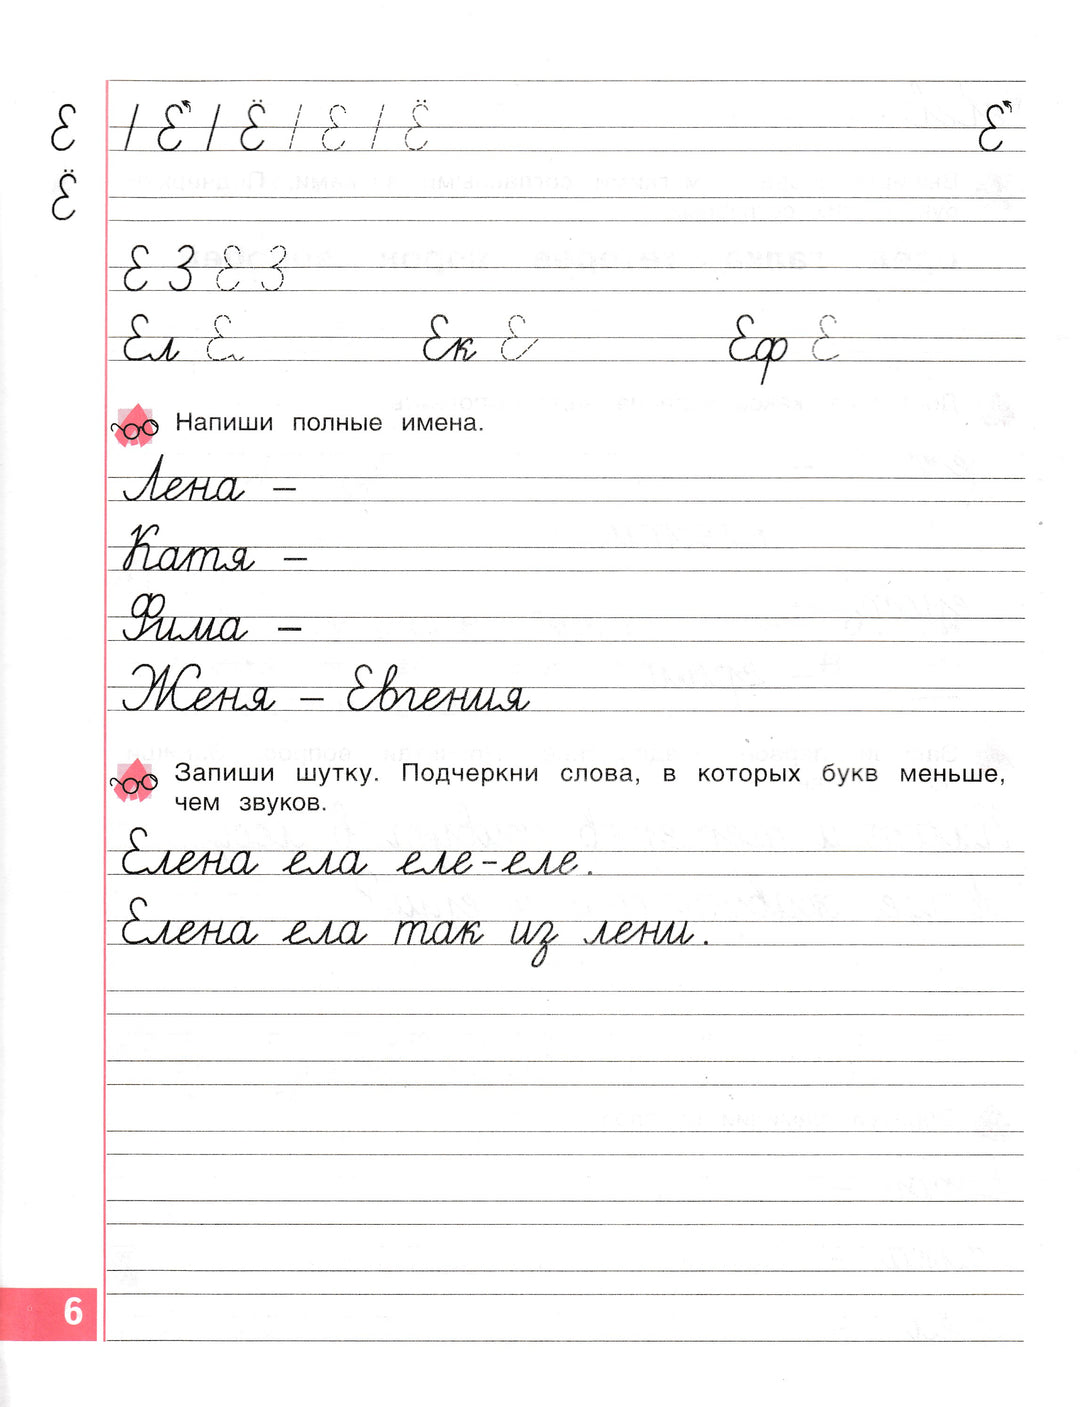 Е | Е | Ё | Е | Ё Е
Ё
Е З Е З
Ел Е Ек Е Еф Е
Напиши полные имена.
Лена –
Катя –
Фима –
Женя – Евгения
Запиши шутку. Подчеркни слова, в которых букв меньше,
чем звуков.
Елена ела еле-еле.
Елена ела так из лени.
6